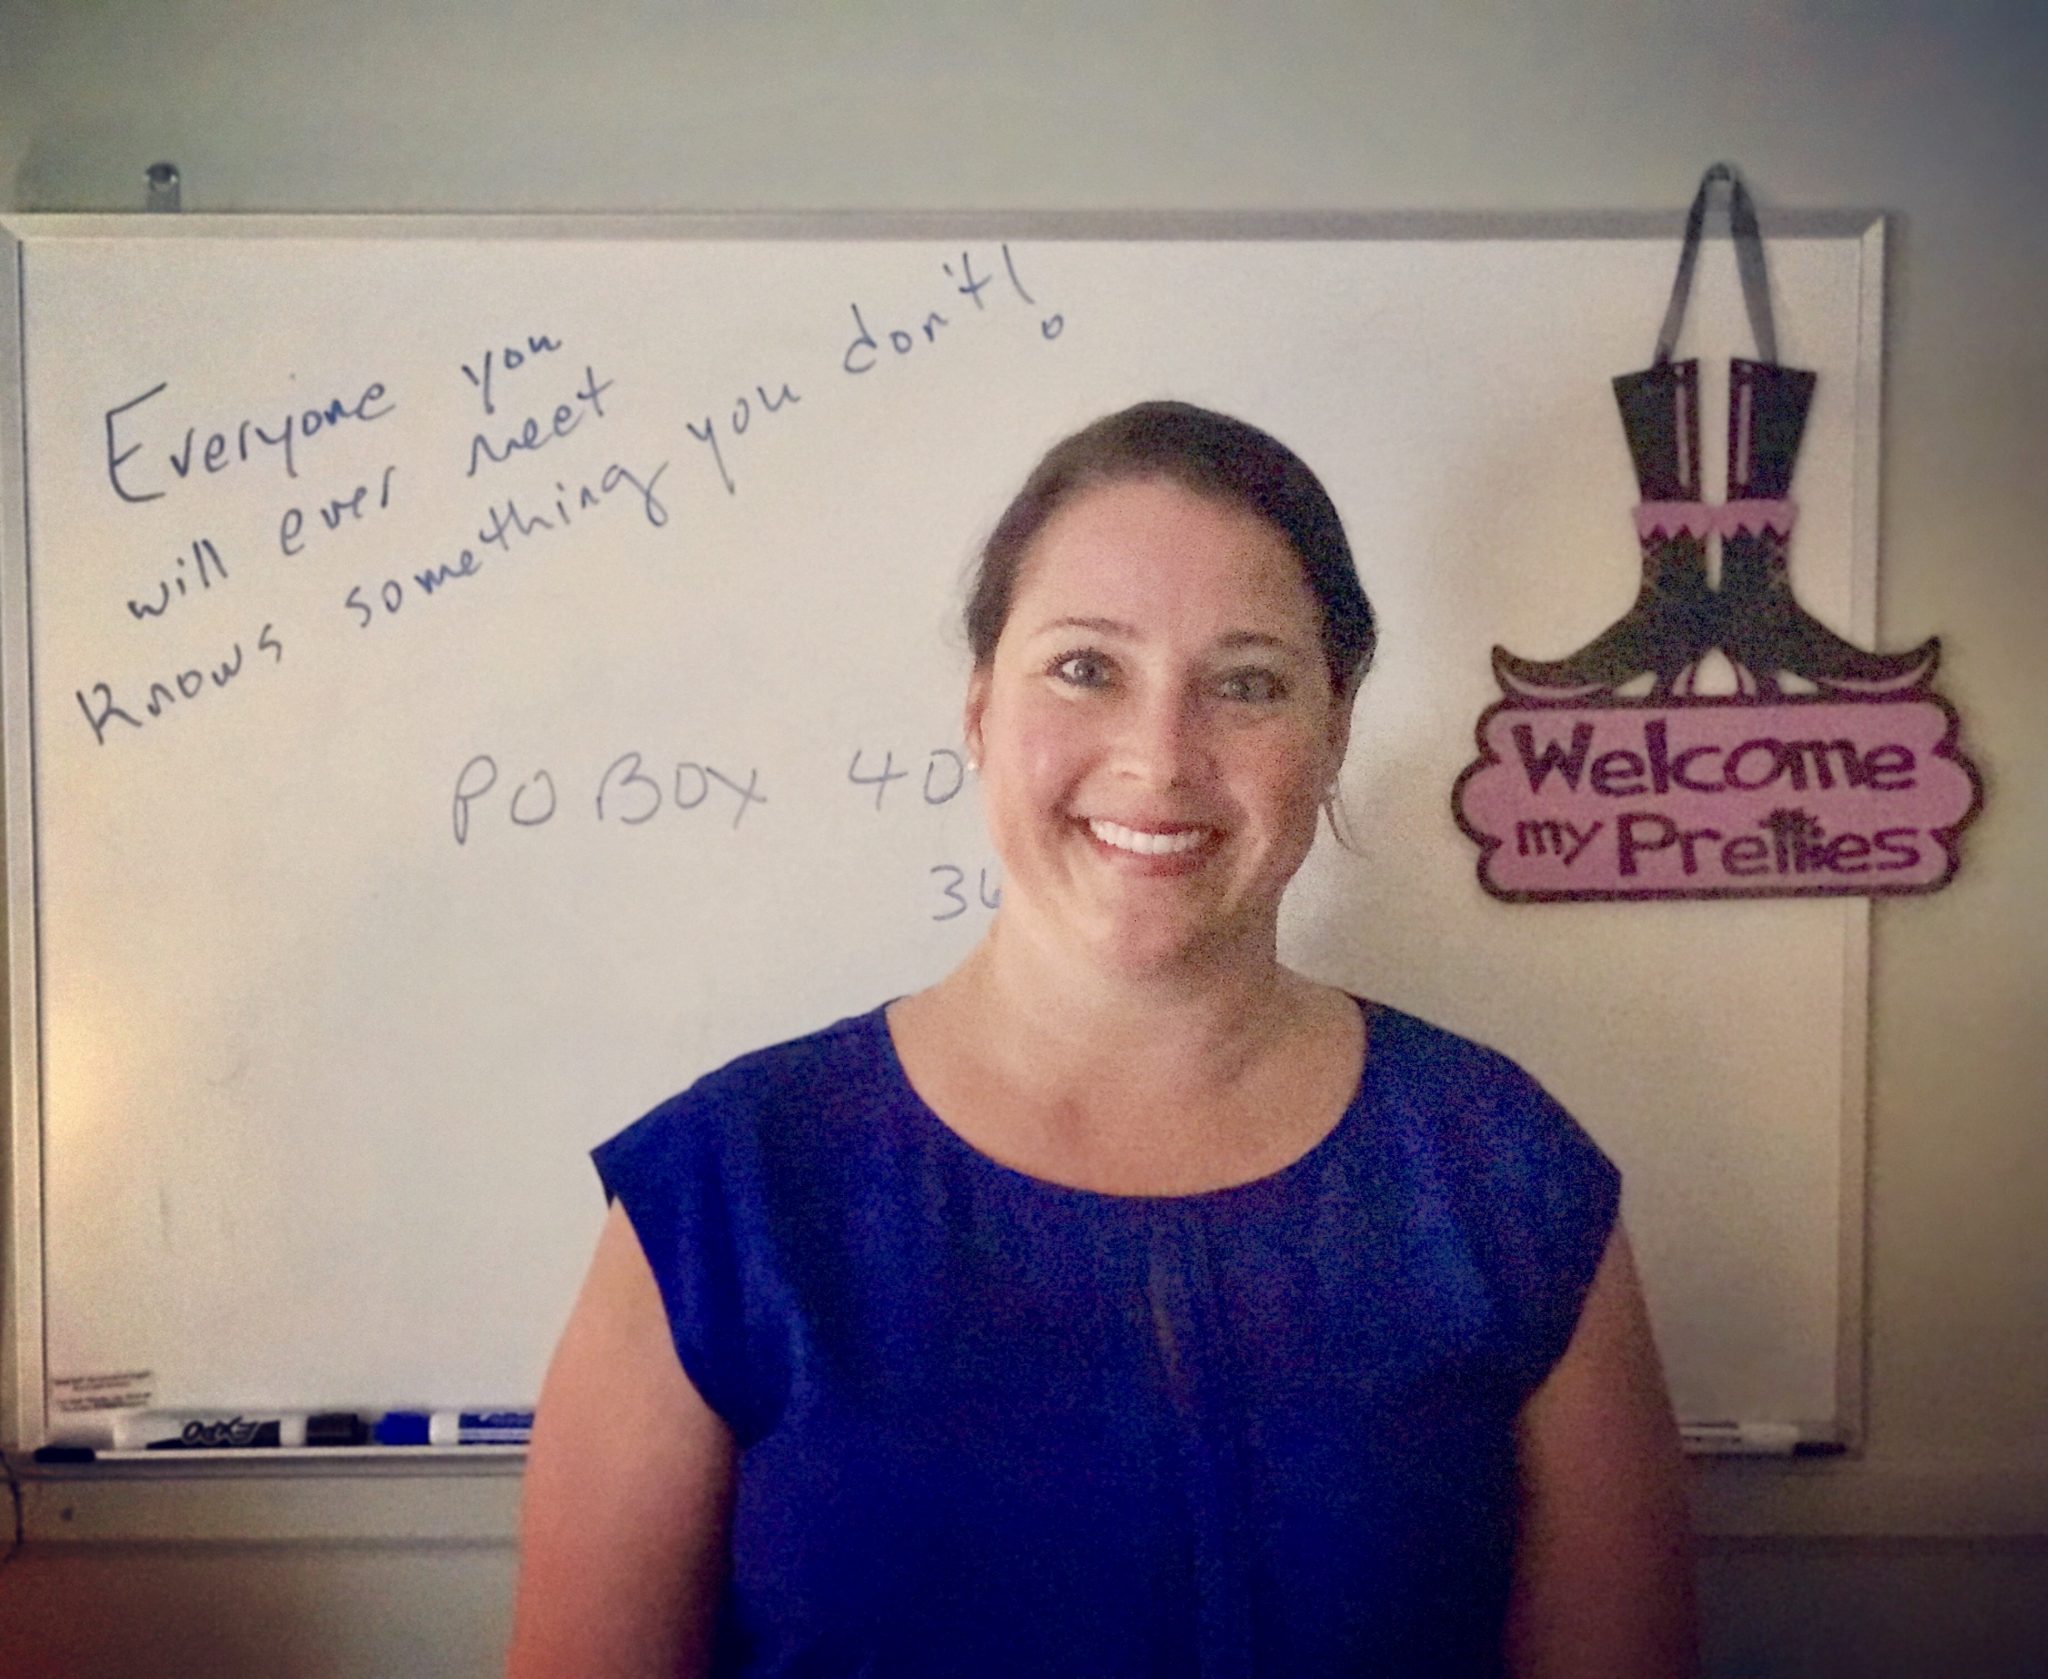 Everyone you
will ever meet
knows something you don't!
PO BOX 40
36
Welcome
my Pretties
EXPO